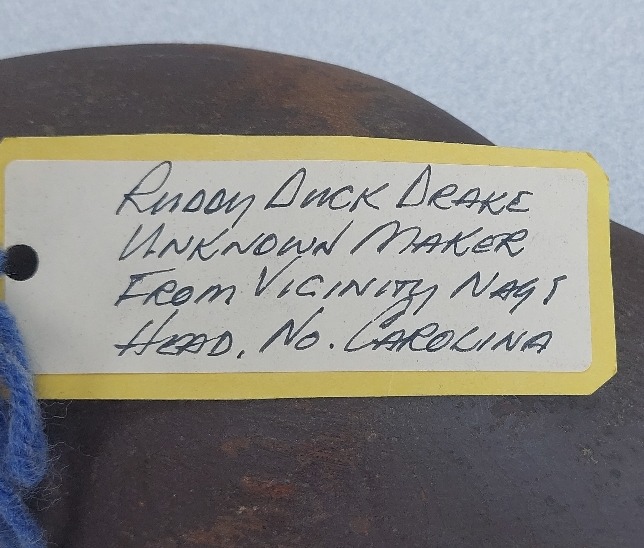 Ruddy Duck Drake
Unknown Maker
From Vicinity Nags
Head, No. Carolina